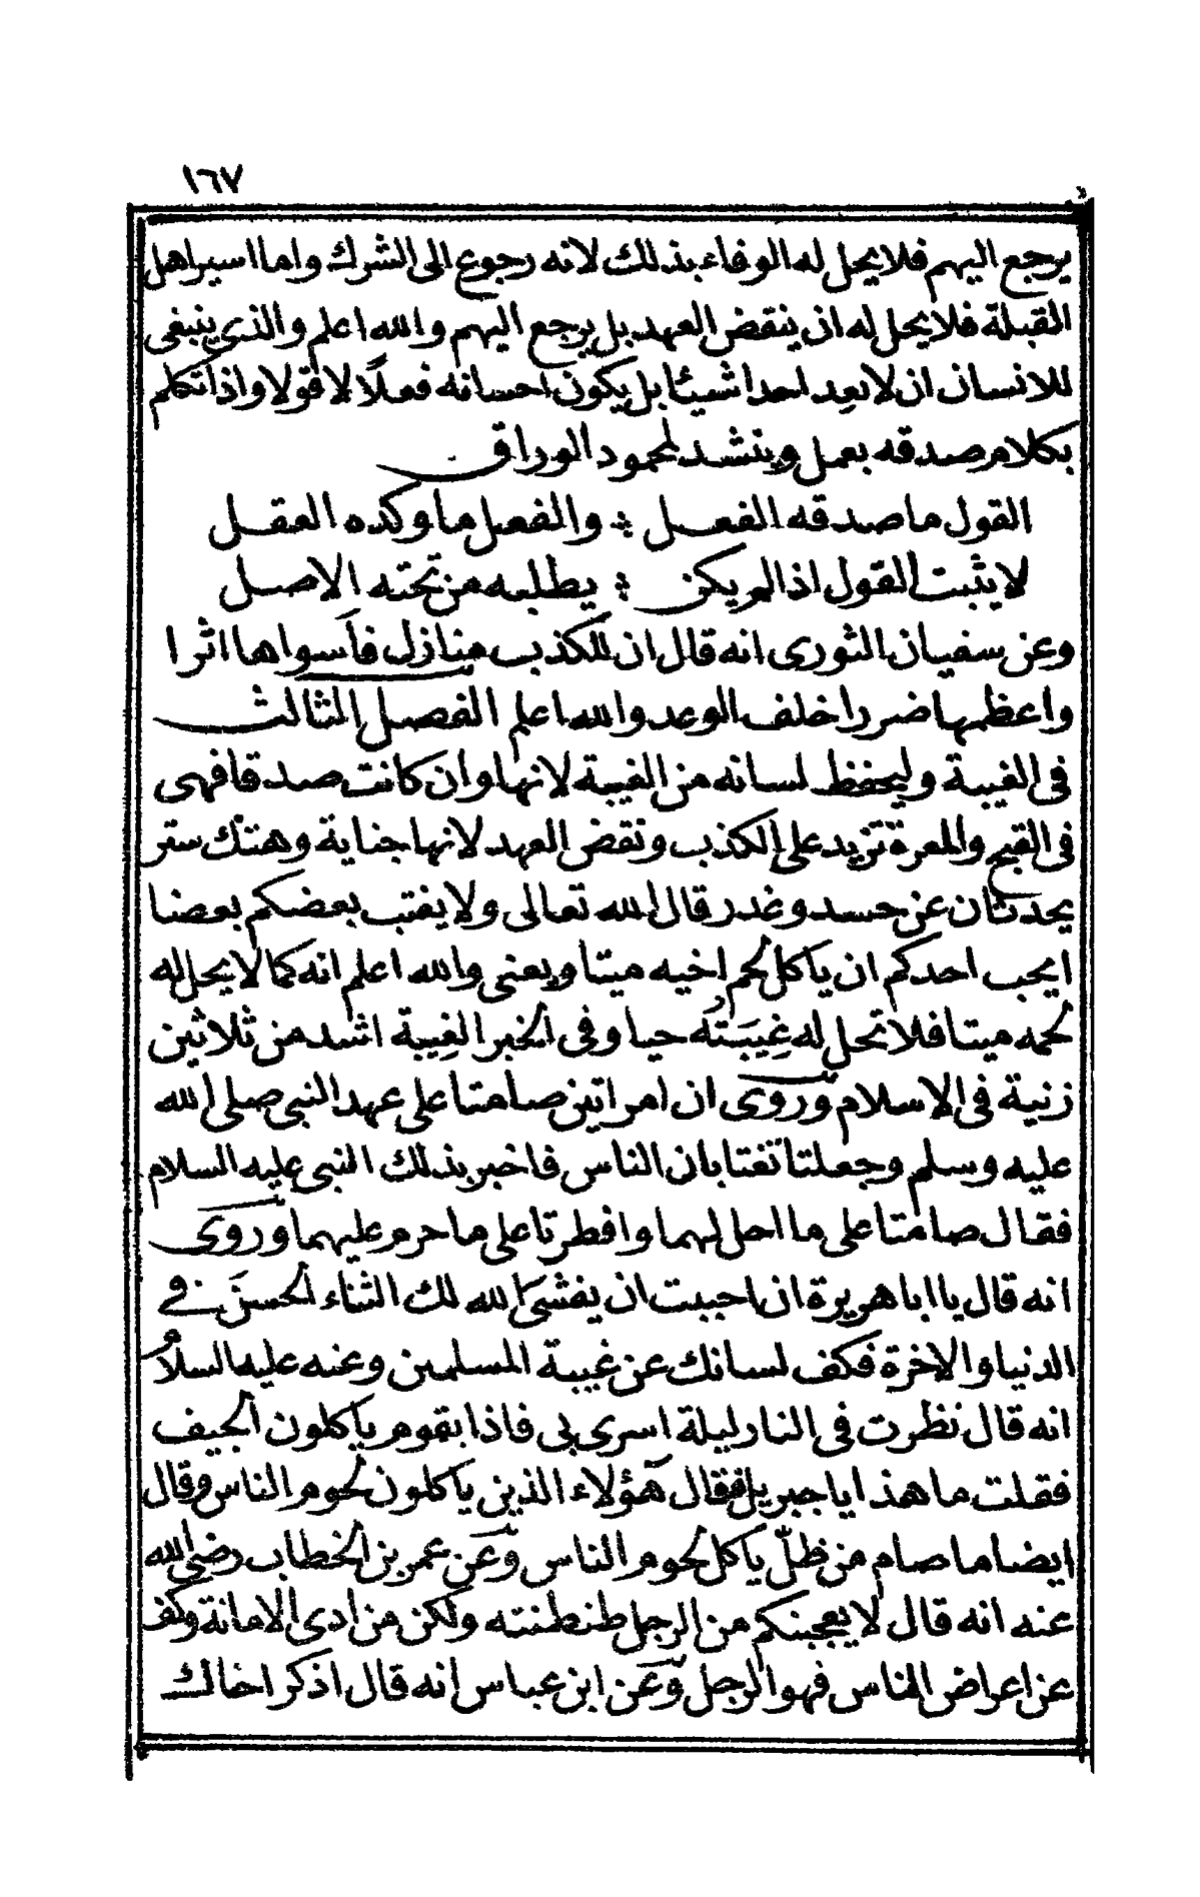 ١٦٧
يرجع اليهم فلا يحل له الوفاء بذلك لانه رجوع الى الشرك واما اسير اهل
القبلة فلا يحل له ان ينقض العهد بل يرجع اليهم والله اعلم والذى ينبغى
للانسان ان لا يعد احدا شيئا بل يكون احسانه فعلًا لا قولا واذا تكلم
بكلام صدقه بعمل وينشد لمحمود الوراق
القول ما صدقه الفعل ؞ والفعل ما وكده العقل
لا يثبت القول اذا لم يكن ؞ يطلبه من تحته الاصل
وعن سفيان الثورى انه قال ان للكذب منازل فأسواها اثرا
واعظمها ضررا خلف الوعد والله اعلم الفصل الثالث
فى الغيبة وليحفظ لسانه من الغيبة لانها وان كانت صدقا فهى
فى القبح والمعرة تزيد على الكذب ونقض العهد لانها جناية وهتك ستر
يحدثان عن حسد وغدر قال الله تعالى ولا يغتب بعضكم بعضا
ايحب احدكم ان ياكل لحم اخيه ميتا ويعنى والله اعلم انه كما لا يحل له
لحمه ميتا فلا تحل له غِيبَتُه حيا وفى الخبر الغِيبة اشد من ثلاثين
زنية فى الاسلام وروى ان امراتين صامتا على عهد النبى صلى الله
عليه وسلم وجعلتا تغتابان الناس فاخبر بذلك النبى عليه السلام
فقال صامتا على ما احل لهما وافطرتا على ما حرم عليهما وروى
انه قال يا ابا هريرة ان احببت ان يفشىَ الله لك الثناء الحسنَ فى
الدنيا والاخرة فكف لسانك عن غيبة المسلمين وعنه عليه السلام
انه قال نظرت فى النار ليلة اسرى بى فاذا بقوم ياكلون الجيف
فقلت ما هذا يا جبريل فقال هؤلاء الذين ياكلون لحوم الناس وقال
ايضا ما صام من ظلّ ياكل لحوم الناس وعن عمر بن الخطاب رضى الله
عنه انه قال لا يعجبنكم من الرجل طنطنته ولكن من ادى الامانة وكف
عن اعراض الناس فهو الرجل وعن ابن عباس انه قال اذكر اخاك